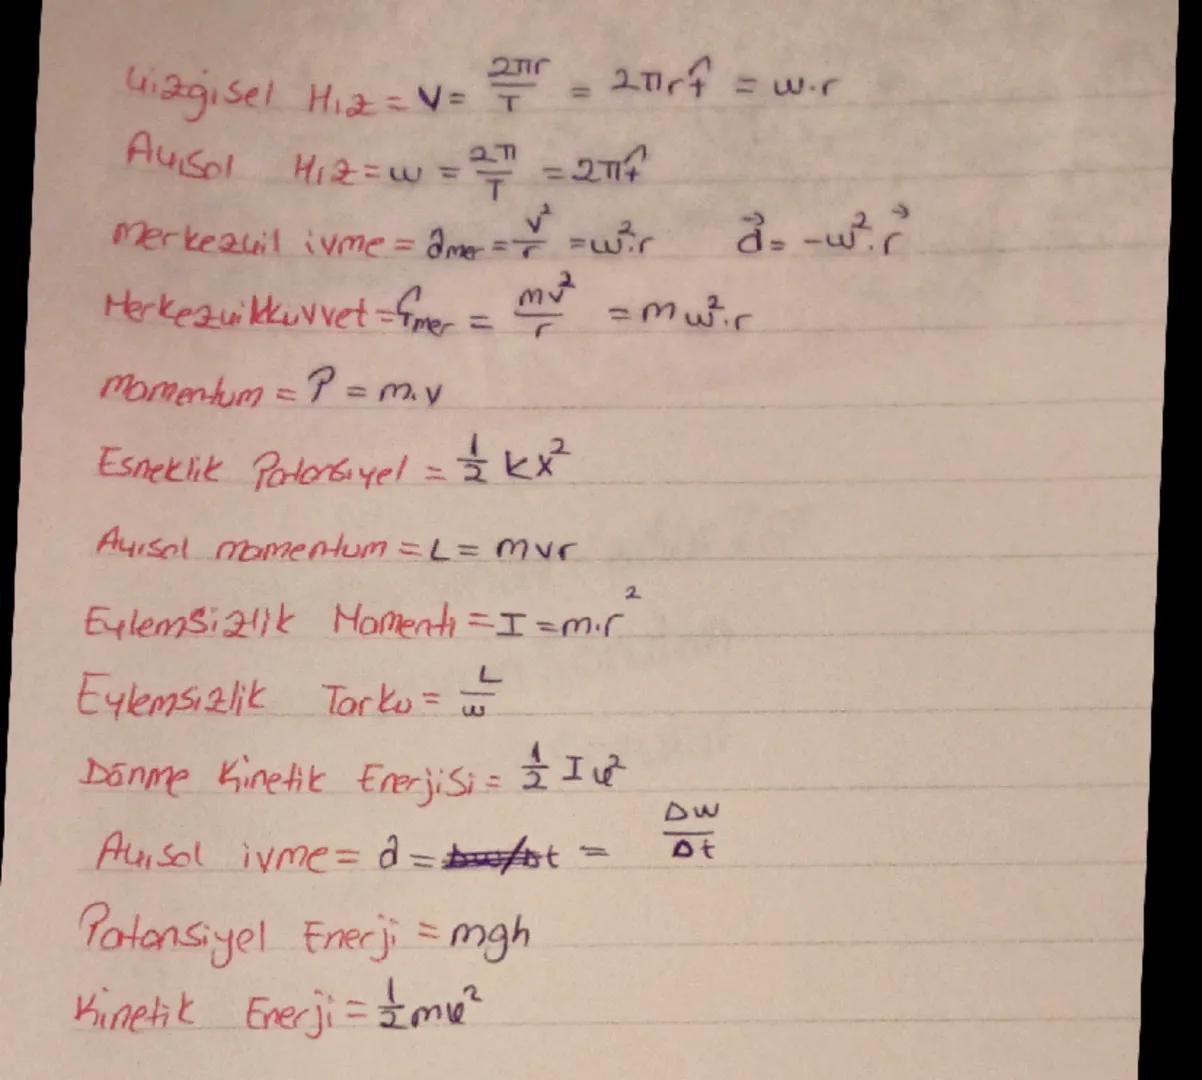 Çizgisel Hız = V = 2πr/T = 2πrf = w.r
Açısal Hız = w = 2π/T = 2πf
Merkezcil ivme = amer = v²/r = w².r a⃗ = -w².r⃗
Merkezcil kuvvet = Fmer = mv²/r = mw².r
Momentum = P = m.v
Esneklik Potansiyel = 1/2 kx²
Açısal momentum = L = mvr
Eylemsizlik Momenti = I = m.r²
Eylemsizlik Torku = L/w
Dönme Kinetik Enerjisi = 1/2 I v²
Açısal ivme = a = Δw/Δt = Δw/Δt
Potansiyel Enerji = mgh
Kinetik Enerji = 1/2 mv²